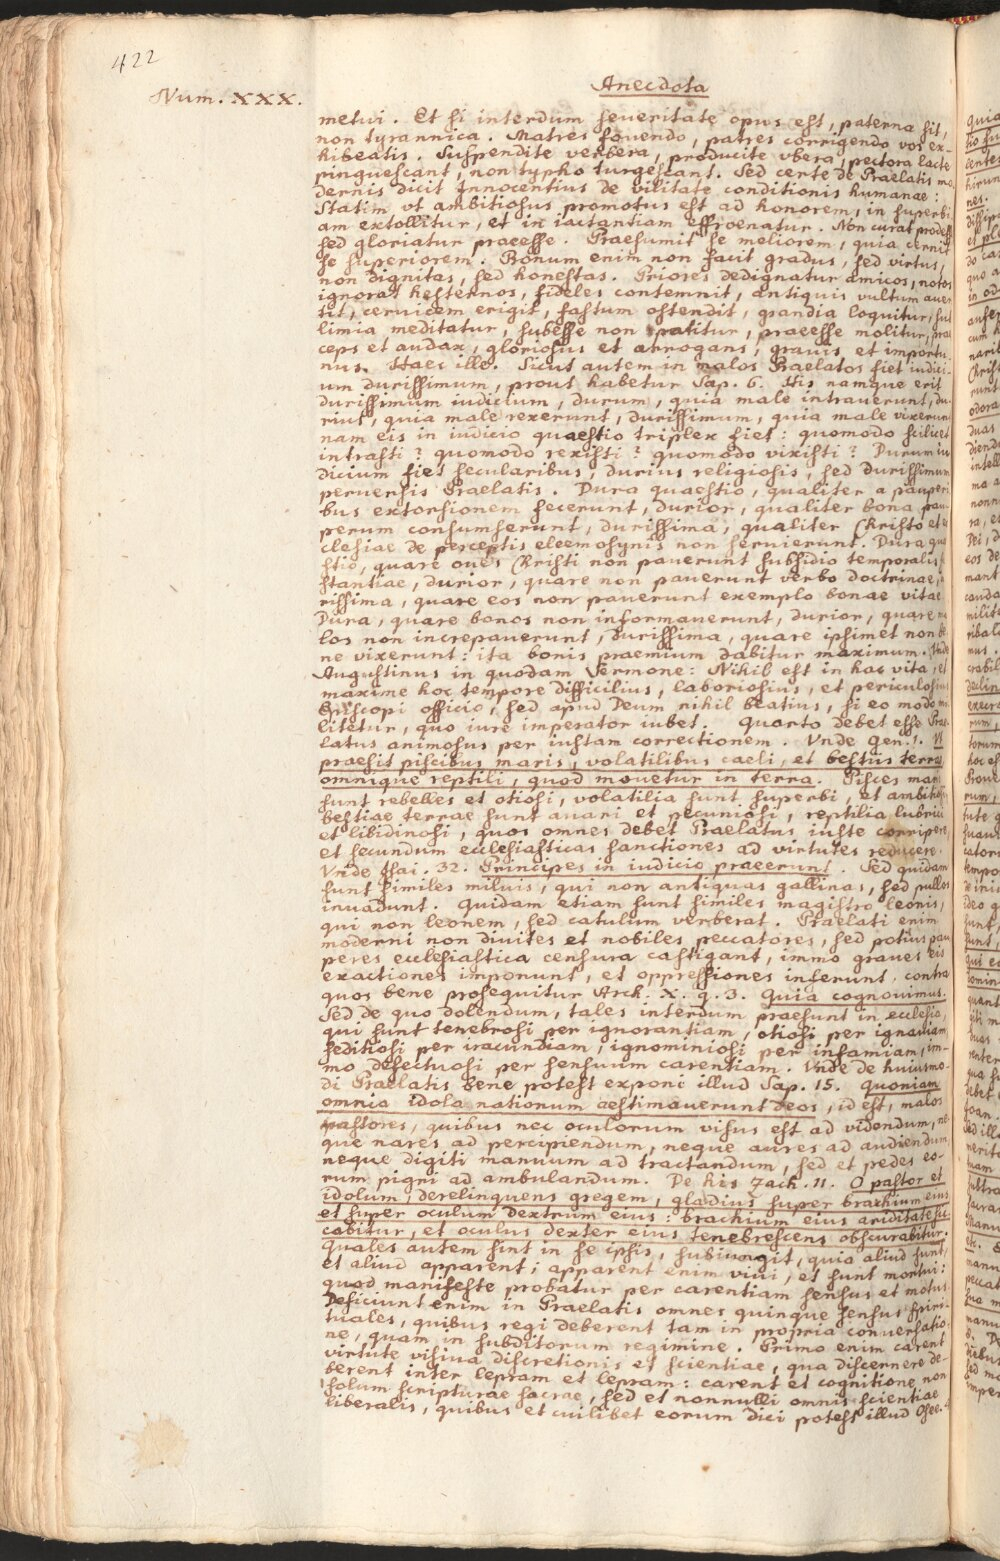 422
Num. XXX.
Anecdota
metui. Et si interdum seueritate opus est, paterna sit,
non tyrannica. Matres fouendo, patres corrigendo vos ex-
hibeatis. Suspendite verbera, producite vbera, pectora lacte
pinguescant, non typho turgescant. Sed certe de Praelatis mo-
dernis dicit Innocentius de vilitate conditionis humanae:
Statim vt ambitiosus promotus est ad honorem, in superbi-
am extollitur, et in iactantiam effroenatur. Non curat prodesse
sed gloriatur praeesse. Praesumit se meliorem, quia cernit
se superiorem. Bonum enim non facit gradus, sed virtus,
non dignitas, sed honestas. Priores dedignatur amicos, notos
ignorat hesternos, fideles contemnit, antiquis vultum auer
tit, ceruicem erigit, fastum ostendit, grandia loquitur, sub
limia meditatur, subesse non patitur, praeesse molitur, prae
ceps et audax, gloriosus et arrogans, grauis et importu-
nus. Haec ille. Sicut autem in malos Praelatos fiet iudici-
um durissimum, prout habetur Sap. 6. His namque erit
durissimum iudicium, durum, quia male intrauerunt, du-
rius, quia male rexerunt, durissimum, quia male vixerun
nam eis in iudicio quaestio triplex fiet: quomodo scilicet
intrasti? quomodo rexisti? quomodo vixisti? Durum iu
dicium fiet secularibus, durius religiosis, sed durissimum
peruersis Praelatis. Dura quaestio, qualiter a pauperi
bus extorsionem fecerunt, durior, qualiter bona pau
perum consumserunt, durissima, qualiter Christo et e
clesiae de perceptis eleemosynis non seruierunt. Dura quae
stio, quare oues Christi non pauerunt subsidio temporalis
stantiae, durior, quare non pauerunt verbo doctrinae,
rissima, quare eos non pauerunt exemplo bonae vitae
Dura, quare bonos non informauerunt, durior, quare ma
los non increpauerunt, durissima, quare ipsimet non be
ne vixerunt: ita bonis praemium dabitur maximum. Vnde
Augustinus in quodam Sermone: Nihil est in hac vita, et
maxime hoc tempore difficilius, laboriosius, et periculosius
Episcopi officio, sed apud Deum nihil beatius, si eo modo mi
litetur, quo iure imperator iubet. Quarto debet esse Prae
latus animosus per iustam correctionem. Vnde Gen. 1. Vt
praesit piscibus maris, volatilibus caeli, et bestiis terrae
omnique reptili, quod mouetur in terra. Pisces maris
sunt rebelles et otiosi, volatilia sunt superbi, et ambitiosi
bestiae terrae sunt auari et pecuniosi, reptilia lubrici
et libidinosi, quos omnes debet Praelatus iuste corripere
et secundum ecclesiasticas sanctiones ad virtutes reducere.
Vnde Isai. 32. Principes in iudicio praeerunt. Sed quidam
sunt similes miluis, qui non antiquas gallinas, sed pullos
inuadunt. Quidam etiam sunt similes magistro leonis,
qui non leonem, sed catulum verberat. Praelati enim
moderni non diuites et nobiles peccatores, sed potius pau
peres ecclesiastica censura castigant, immo graues eis
exactiones imponunt, et oppressiones inferunt, contra
quos bene prosequitur Arch. X. q. 3. Quia cognouimus.
Sed de quo dolendum, tales interdum praesunt in ecclesia,
qui sunt tenebrosi per ignorantiam, otiosi per ignauiam,
seditiosi per iracundiam, ignominiosi per infamiam, im-
mo defectuosi per sensuum carentiam. Vnde de huiusmo-
di Praelatis bene potest exponi illud Sap. 15. quoniam
omnia idola nationum aestimauerunt deos, id est, malos
pastores, quibus nec oculorum visus est ad videndum, ne-
que nares ad percipiendum, neque aures ad audiendum
neque digiti manuum ad tractandum, sed et pedes eo-
rum pigri ad ambulandum. De his Zach. 11. O pastor et
idolum, derelinquens gregem, gladius super brachium eius
et super oculum dextrum eius: brachium eius ariditate sic
cabitur, et oculus dexter eius tenebrescens obscurabitur.
Quales autem sint in se ipsis, subiungit, quia aliud sunt,
et aliud apparent; apparent enim viui, et sunt mortui:
quod manifeste probatur per carentiam sensus et motus.
Deficiunt enim in Praelatis omnes quinque sensus spiri-
tuales, quibus regi deberent tam in propria conuersatio-
ne, quam in subditorum regimine. Primo enim carent
virtute visiua discretionis et scientiae, qua discernere de-
berent inter lepram et lepram: carent et cognitione non
solum scripturae sacrae, sed et nonnulli omnis scientiae
liberalis, quibus et cuilibet eorum dici potest illud Osee. 4